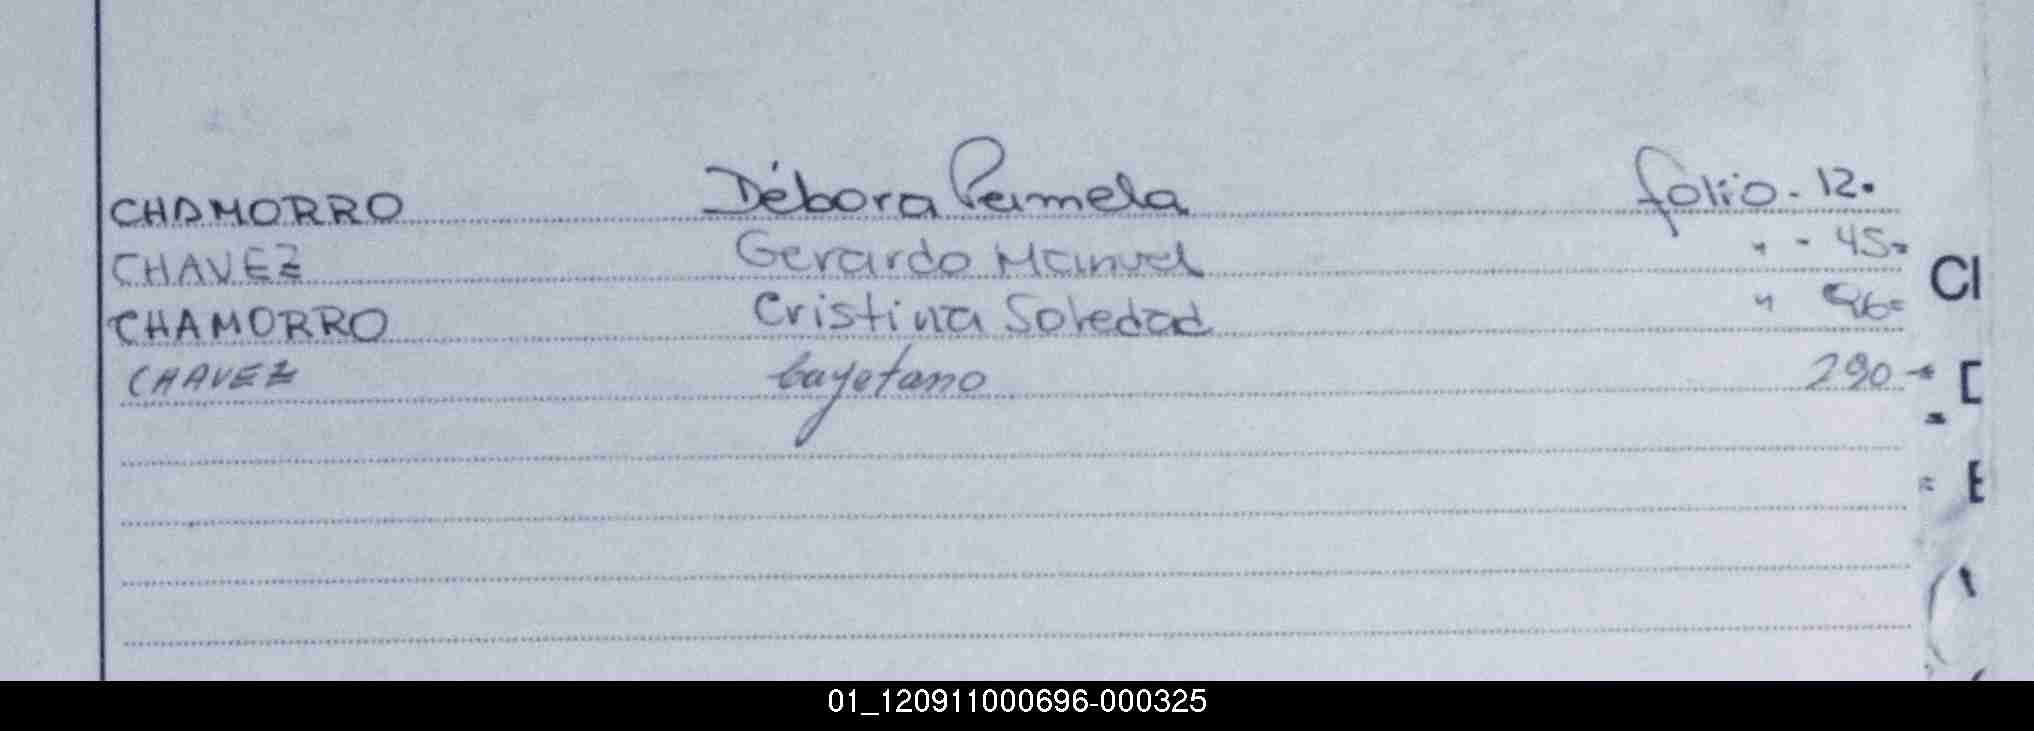 CHAMORRO Débora Pamela folio - 12.
CHAVEZ Gerardo Manuel " - 45=
CHAMORRO Cristina Soledad " 96=
CHAVEZ Cayetano 290
CI
D
E
01_120911000696-000325